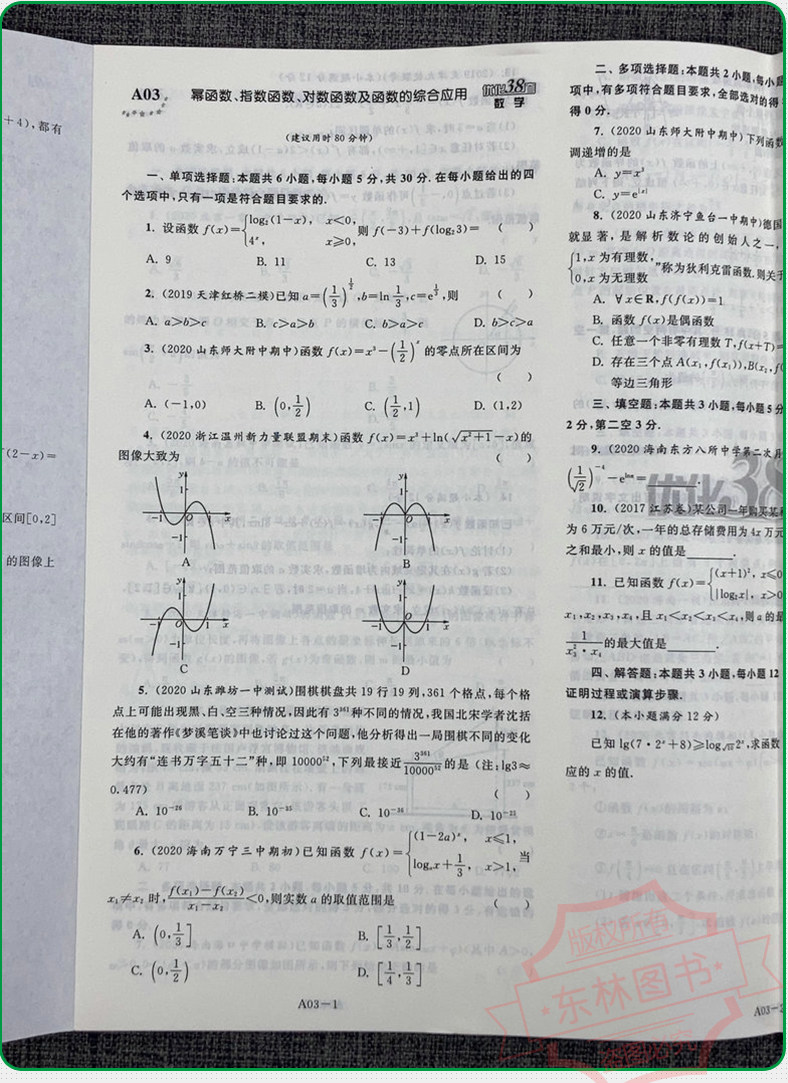 ＋4),都有
(2－x)＝
区间[0,2]
的图像上
A03
幂函数、指数函数、对数函数及函数的综合应用
优化38套
数学
(建议用时80分钟)
一、单项选择题:本题共6小题,每小题5分,共30分.在每小题给出的四
个选项中,只有一项是符合题目要求的.
1. 设函数 f(x)={log₂(1－x), x＜0, 4ˣ, x≥0, 则 f(－3)＋f(log₂3)＝ ( )
A. 9 B. 11 C. 13 D. 15
2. (2019天津红桥二模)已知 a＝(1/3)^(1/2), b＝ln 1/3, c＝e^(1/3),则 ( )
A. a＞b＞c B. c＞a＞b C. b＞a＞c D. b＞c＞a
3. (2020山东师大附中期中)函数 f(x)＝x³－(1/2)ˣ 的零点所在区间为
( )
A. (－1,0) B. (0,1/2) C. (1/2,1) D. (1,2)
4. (2020浙江温州新力量联盟期末)函数 f(x)＝x²＋ln(√(x²＋1)－x)的
图像大致为 ( )
y 1 －1 O 1 x －1
A
y 1 －1 O 1 x －1
B
y 1 －1 O 1 x －1
C
y 1 －1 O 1 x －1
D
5. (2020山东潍坊一中测试)围棋棋盘共19行19列,361个格点,每个格
点上可能出现黑、白、空三种情况,因此有3³⁶¹种不同的情况,我国北宋学者沈括
在他的著作《梦溪笔谈》中也讨论过这个问题,他分析得出一局围棋不同的变化
大约有“连书万字五十二”种,即10000⁵²,下列最接近 3³⁶¹/10000⁵² 的是(注:lg3≈
0.477) ( )
A. 10⁻²⁶ B. 10⁻³⁵ C. 10⁻³⁶ D. 10⁻²⁵
6. (2020海南万宁三中期初)已知函数 f(x)＝{(1－2a)ˣ, x≤1, logₐx＋1/3, x＞1, 当
x₁≠x₂时, (f(x₁)－f(x₂))/(x₁－x₂)＜0,则实数a的取值范围是 ( )
A. (0,1/3] B. [1/3,1/2]
C. (0,1/2) D. [1/4,1/3]
A03－1
二、多项选择题:本题共2小题,每小题
项中,有多项符合题目要求,全部选对的得
得0分.
7. (2020山东师大附中期中)下列函数
调递增的是
A. y＝x³
C. y＝e^|x|
8. (2020山东济宁鱼台一中期中)德国
就显著,是解析数论的创始人之一,
{1,x为有理数, 0,x为无理数 ”称为狄利克雷函数.则关于
A. ∀x∈R,f(f(x))＝1
B. 函数f(x)是偶函数
C. 任意一个非零有理数T,f(x+T)＝
D. 存在三个点A(x₁,f(x₁)),B(x₂,f(
等边三角形
三、填空题:本题共3小题,每小题5分
2分,第二空3分.
9. (2020海南东方八所中学第二次月
(1/√2)⁻⁴－e^ln＝
10. (2017江苏卷)某公司一年购买某种
为6万元/次,一年的总存储费用为4x万元
之和最小,则x的值是 .
11. 已知函数 f(x)＝{(x＋1)², x≤0 |log₂x|, x＞0
x₁,x₂,x₃,x₄,且x₁＜x₂＜x₃＜x₄,则a的最
1/(x₃²·x₄) 的最大值是 .
四、解答题:本题共3小题,每小题12
证明过程或演算步骤.
12. (本小题满分12分)
已知 lg(7·2ˣ＋8)≥log√10 2ˣ,求函数
应的x的值.
A03－2
版权所有
东林图书